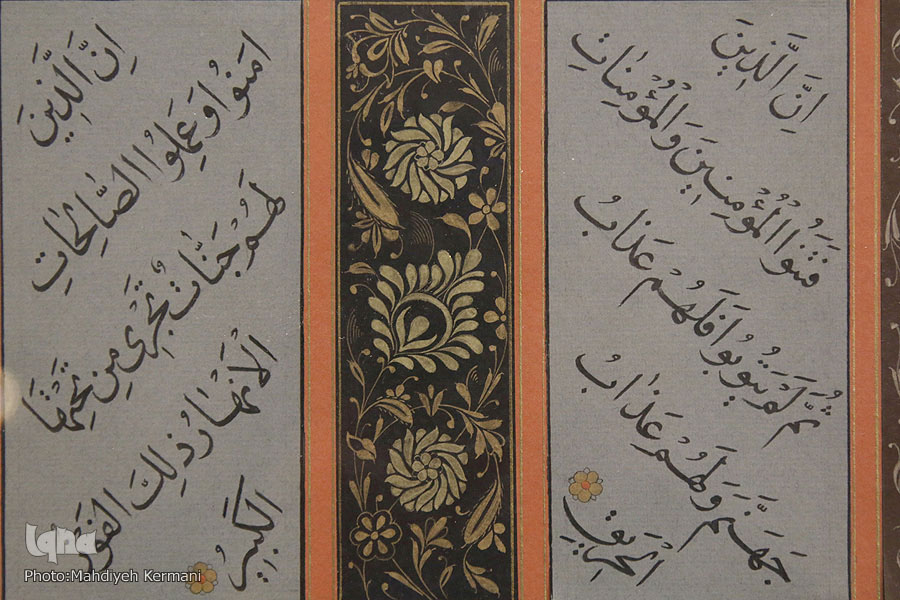 اِنَّ الَّذينَ
فَتَنُوا الْمُؤْمِنينَ وَالْمُؤْمِناتِ
ثُمَّ لَمْ يَتُوبُوا فَلَهُمْ عَذابُ
جَهَنَّمَ وَلَهُمْ عَذابُ
الْحَريقِ
اِنَّ الَّذينَ
امَنُوا وَعَمِلُوا الصَّالِحاتِ
لَهُمْ جَنَّاتٌ تَجْرى مِنْ تَحْتِهَا
الْاَنْهارُ ذلِكَ الْفَوْزُ
الْكَبيرُ
iqna
Photo:Mahdiyeh Kermani